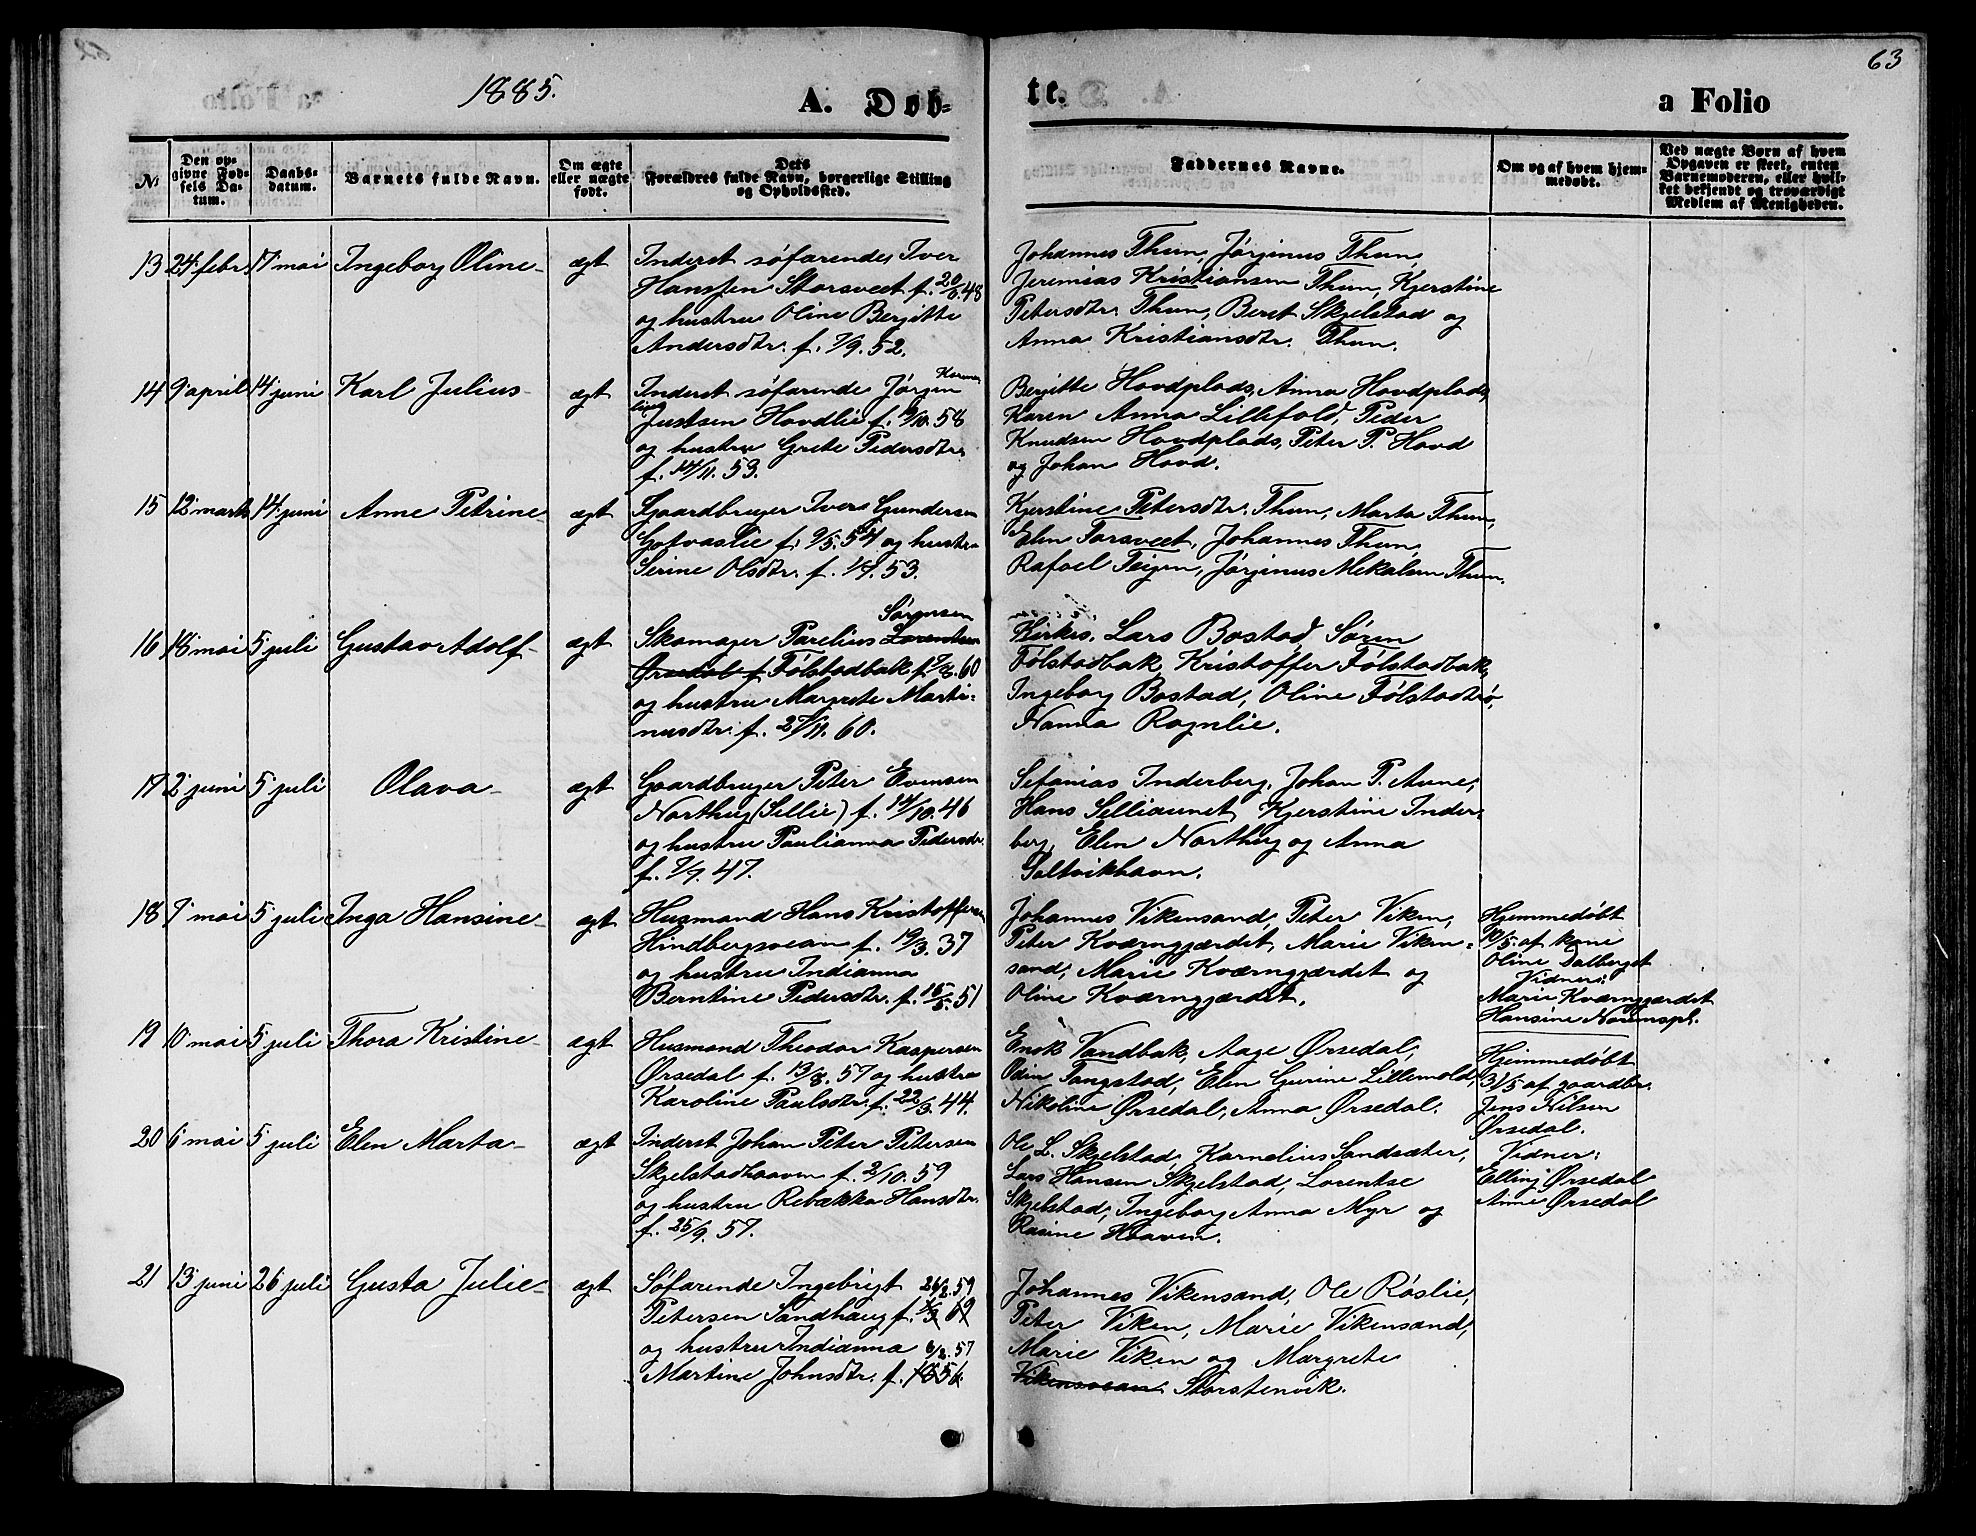 63
1885.
A. Døb-
te.
a Folio
№
Den op-
givne Fød-
sels Da-
tum.
Daabs-
datum.
Barnets fulde Navn.
Om ægte
eller uægte
født.
Dets
Forældres fulde Navn, borgerlige Stilling
og Opholdssted.
Faddernes Navne.
Om og af hvem hjem-
medøbt.
Ved uægte Børn af hvem
Opgaven er skeet, enten
Barnemoderen, eller hvil-
ket bekjendt og troværdigt
Medlem af Menigheden.
13 24 febr. 17 mai Ingeborg Oline ægt
Inderst søfarende Iver
Hanssen Storsveet f. 20/6.48
og hustru Oline Bergitte
Andersdtr. f. 7/9.52.
Johannes Thun, Jørginus Thun,
Jeremias Kristiansen Thun, Kjerstine
Petersdtr. Thun, Beret Skjelstad og
Anna Kristiansdtr. Thun.
14 9 april 14 juni Karl Julius ægt
Inderst søfarende Jørgen
Justsen Hovdlie f. 19/10.58
og hustru Grete Pedersdtr.
f. 14/11.53.
Bergitte Hovdplads, Anna Hovdplads,
Karen Anna Lillefold, Peder
Knudsen Hovdplads, Peter P. Hovd
og Johan Hovd.
15 12 marts 14 juni Anne Petrine ægt
Gaardbruger Iver Gundersen
Gotvaslie f. 9/5.54 og hustru
Serine Olsdtr. f. 1/7.53.
Kjerstine Petersdtr. Thun, Marta Thun,
Elen Torsveet, Johannes Thun,
Rafael Teigen, Jørginus Mikalsen Thun.
16 18 mai 5 juli Gustav Adolf ægt
Sørensen
Skomager Parelius Lorentsen
Ørsedal f. Følstadbak f. 7/8.60
og hustru Margrete Marti-
nusdtr. f. 27/11.60.
Kirkes. Lars Bostad, Søren
Følstadbak, Kristoffer Følstadbak,
Ingeborg Bostad, Oline Følstadtrø,
Nanna Rognlie.
17 2 juni 5 juli Olava ægt
Gaardbruger Peter Evensen
Northug (Sellie) f. 14/10.46
og hustru Paulianna Pedersdtr.
f. 7/9.47.
Sefanias Inderberg, Johan P. Aune,
Hans Selliaunet, Kjerstine Inder-
berg, Elen Northug og Anna
Saltvikhavn.
18 7 mai 5 juli Inga Hansine ægt
Husmand Hans Kristoffersen
Hindbergsvean f. 19/3.37
og hustru Indianna
Berntine Pedersdtr. f. 16/5.51
Johannes Vikensand, Peter Viken,
Peter Kværngjærdet, Marie Viken-
sand, Marie Kværngjærdet og
Oline Kværngjærdet.
Hjemmedøbt
10/5. af kone
Oline Dalberget
Vidner:
Marie Kværngjærdet
Hansine Norumspl.
19 10 mai 5 juli Thora Kristine ægt
Husmand Theodor Kaspersen
Ørsedal f. 13/8.57 og hustru
Karoline Paulsdtr. f. 22/3.44.
Enok Vandbak, Aage Ørsedal,
Odin Tangstad, Elen Gurine Lillemold,
Nikoline Ørsedal, Anna Ørsedal.
Hjemmedøbt
31/5 af gaardbr.
Jens Nilsen
Ørsedal.
Vidner:
Elling Ørsedal
Anne Ørsedal
20 6 mai 5 juli Elen Marta ægt
Inderst Johan Peter Petersen
Skjelstadhaaven f. 2/10.59
og hustru Rebækka Hansdtr.
f. 25/9.57.
Ole L. Skjelstad, Karnelius Sandsæter,
Lars Hansen Skjelstad, Lorentse
Skjelstad, Ingeborg Anna Myr og
Rasine Haaven.
21 13 juni 26 juli Gusta Julie ægt
Søfarende Ingebrigt 26/2.59
Petersen Sandhaug f. 1/3 69
og hustru Indianna 6/2.57
Martine Johnsdtr. f. 1856.
Johannes Vikensand, Ole Røslie,
Peter Viken, Marie Vikensand,
Marie Viken og Margrete
Vikensvean Storstenvik.